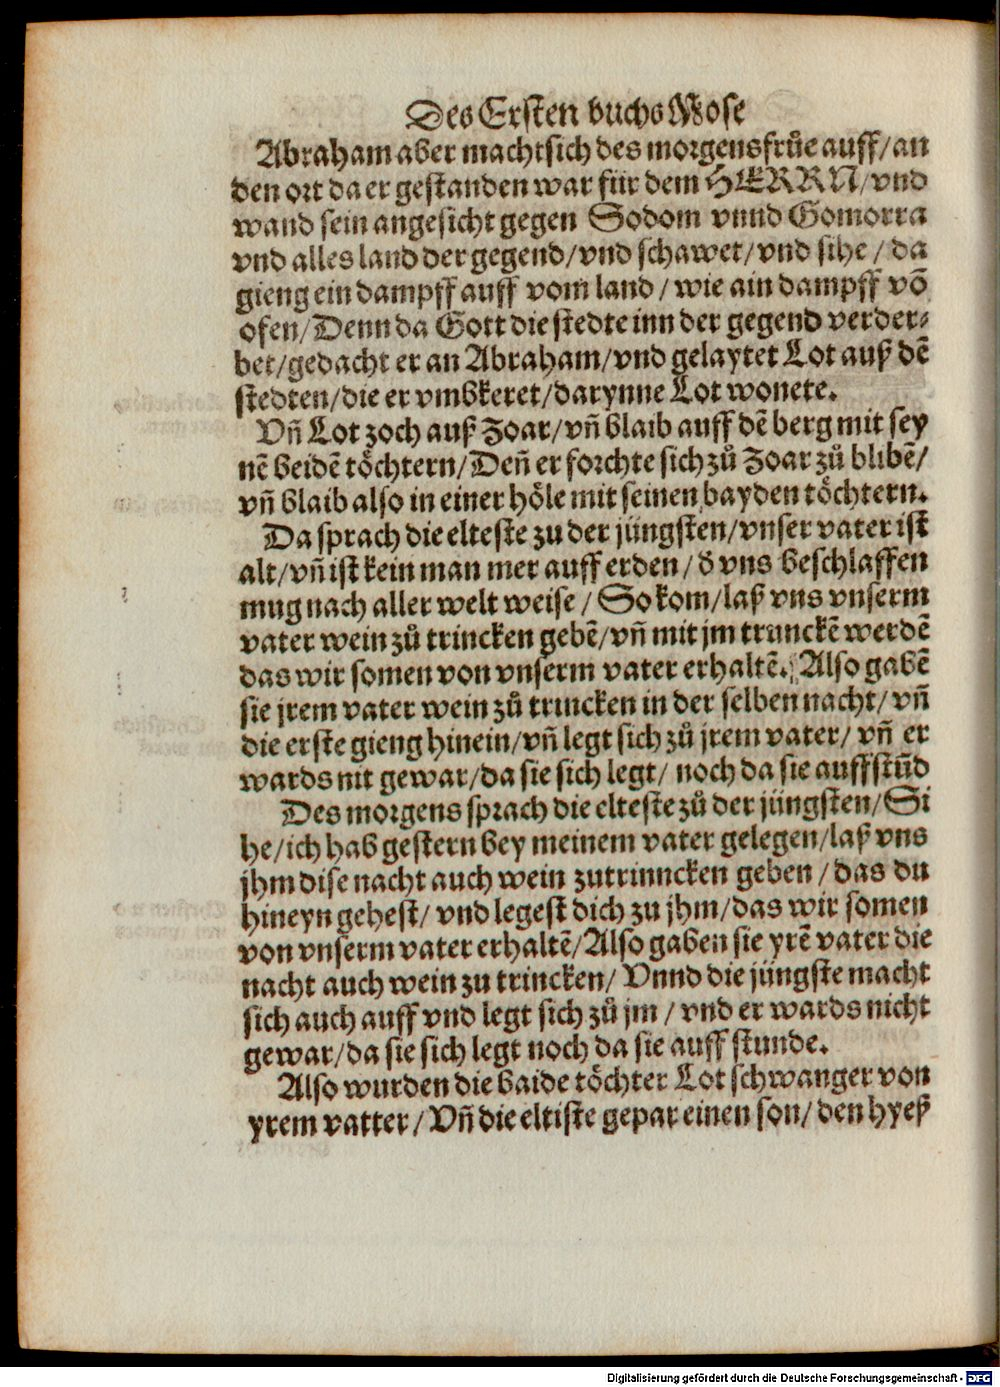 Des Ersten buchs Mose
Abraham aber macht sich des morgens frůe auff/an
den ort da er gestanden war für dem HERRN/vnd
wand sein angesicht gegen Sodom vnnd Gomorra
vnd alles land der gegend/vnd schawet/vnd sihe/da
gieng ein dampff auff vom land/wie ain dampff võ
ofen/Denn da Gott die stedte inn der gegend verder⸗
bet/gedacht er an Abraham/vnd gelaytet Lot auß dẽ
stedten/die er vmbkeret/darynne Lot wonete.
Vñ Lot zoch auß Zoar/vñ blaib auff dẽ berg mit sey
nẽ beidẽ töchtern/Deñ er forchte sich zů Zoar zů blibẽ/
vñ blaib also in einer höle mit seinen bayden töchtern.
Da sprach die elteste zu der jüngsten/vnser vater ist
alt/vñ ist kein man mer auff erden/d̕ vns beschlaffen
mug nach aller welt weise/So kom/laß vns vnserm
vater wein zů trincken gebẽ/vñ mit jm trunckẽ werdẽ
das wir somen von vnserm vater erhaltẽ. Also gabẽ
sie jrem vater wein zů trincken in der selben nacht/vñ
die erste gieng hinein/vñ legt sich zů jrem vater/vñ er
wards nit gewar/da sie sich legt/noch da sie auffstũd
Des morgens sprach die elteste zů der jüngsten/Si
he/ich hab gestern bey meinem vater gelegen/laß vns
jhm dise nacht auch wein zutrinncken geben/das du
hineyn gehest/vnd legest dich zu jhm/das wir somen
von vnserm vater erhaltẽ/Also gaben sie yrẽ vater die
nacht auch wein zu trincken/Vnnd die jüngste macht
sich auch auff vnd legt sich zů jm/vnd er wards nicht
gewar/da sie sich legt noch da sie auff stunde.
Also wurden die baide töchter Lot schwanger von
yrem vatter/Vñ die eltiste gepar einen son/den hyeß
Digitalisierung gefördert durch die Deutsche Forschungsgemeinschaft - DFG